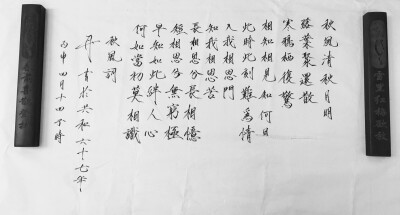 秋風清秋月明
落葉聚還散
寒鴉栖復驚
相知相見知何日
此時此刻難為情
入我相思門
知我相思苦
長相思兮長相憶
短相思兮無窮極
早知如此絆人心
何如當初莫相識
秋風詞
丹書於共和六十七年
丙申四月十四時